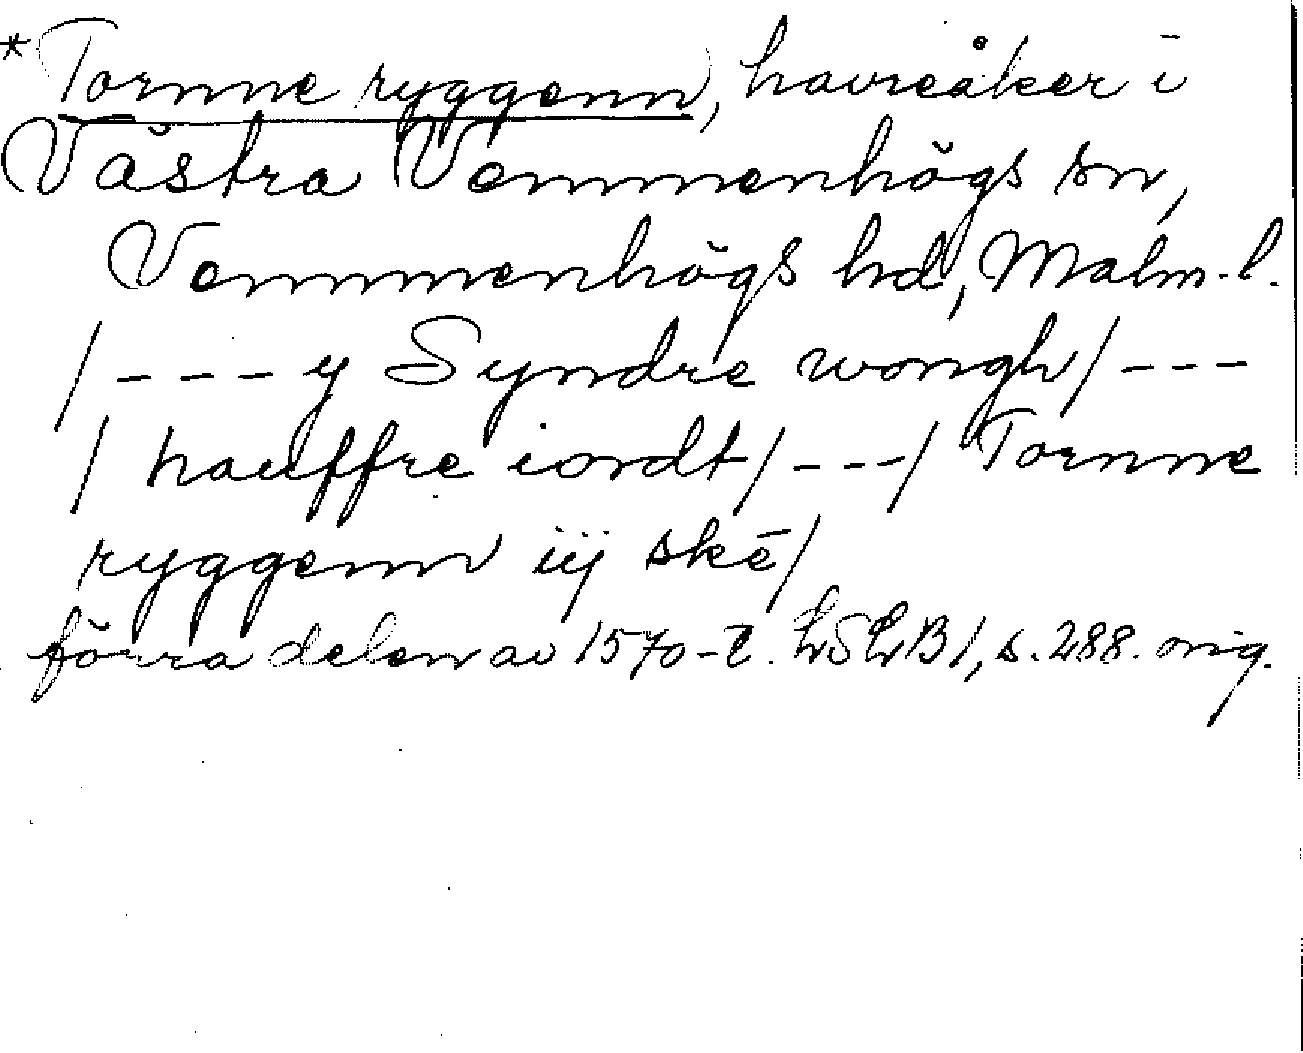 * Tornne ryggenn, havreåker i
Västra Vemmenhögs sn,
Vemmenhögs hd, Malm.l.
/ - - - y Syndre wongh / - - -
/ hauffre iordt / - - - / Tornne
ryggenn iij skē /
förra delen av 1570-t. LSLB 1, s. 288. orig.